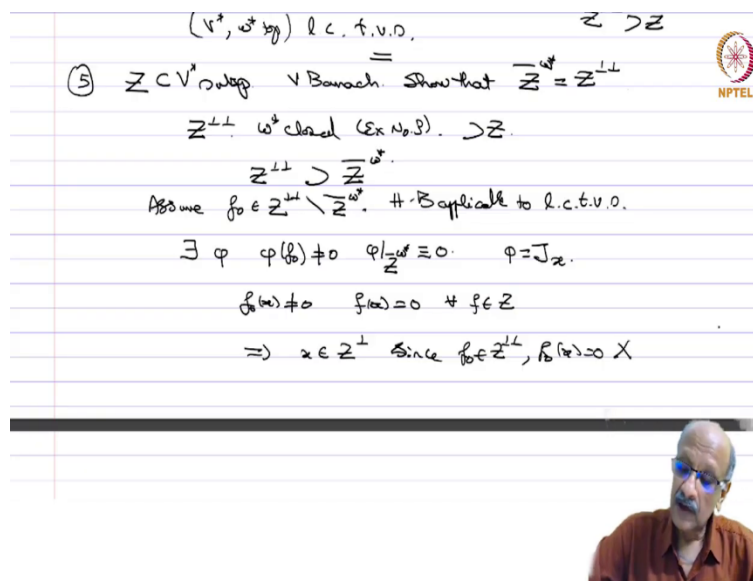 (V*, w* top) l.c.t.v.s. Z ⊃ Z
NPTEL
⑤ Z ⊂ V* subsp V Banach. Show that Z̅^{w*} = Z^{⊥⊥}
Z^{⊥⊥} w* closed (Ex No. 3). ⊃ Z.
Z^{⊥⊥} ⊃ Z̅^{w*}.
Assume f₀ ∈ Z^{⊥⊥} \ Z̅^{w*}. H-B applicable to l.c.t.v.s.
∃ φ φ(f₀) ≠ 0 φ|_{Z̅^{w*}} ≡ 0. φ = J_x.
f₀(x) ≠ 0 f(x) = 0 ∀ f ∈ Z
⇒ x ∈ Z^⊥ Since f₀ ∈ Z^{⊥⊥}, f₀(x) = 0 X